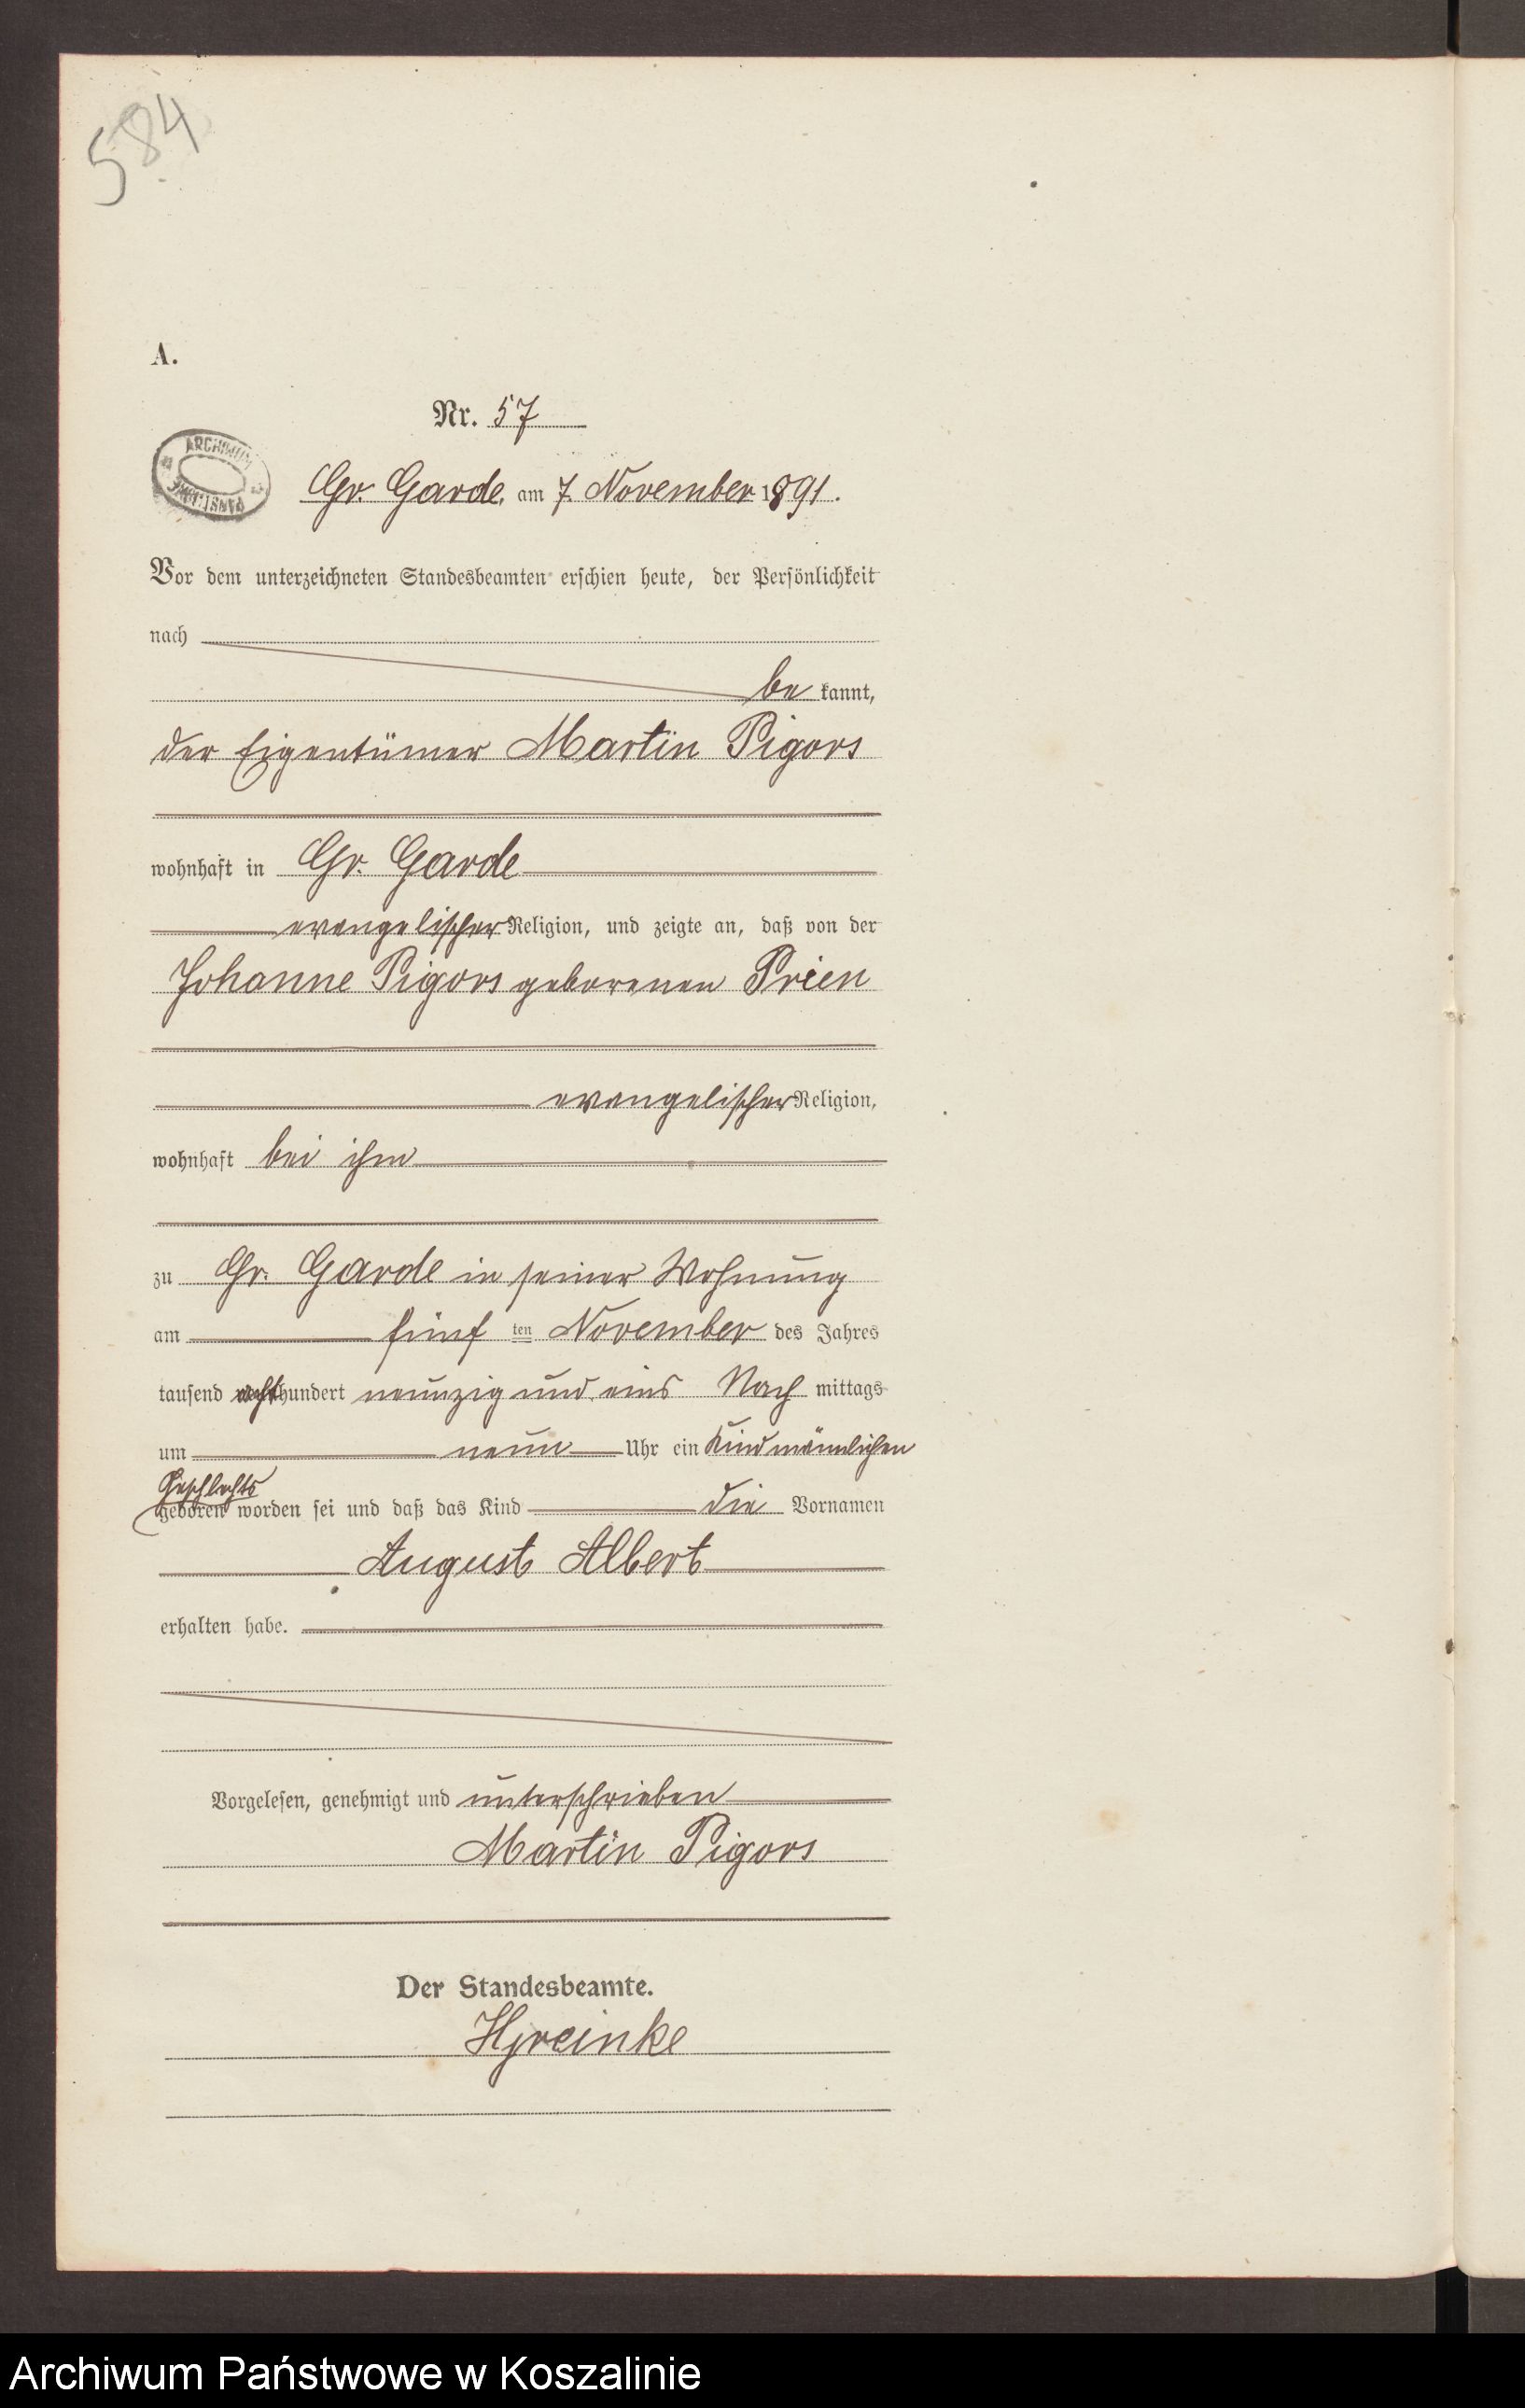 584
A.
Nr. 57
ARCHIWUM PAŃSTWOWE
Gr. Garde, am 7. November 1891.
Vor dem unterzeichneten Standesbeamten erschien heute, der Persönlichkeit
nach
be kannt,
der Eigentümer Martin Pigors
wohnhaft in Gr. Garde
evangelischer Religion, und zeigte an, daß von der
Johanne Pigors geborenen Prien
evangelischer Religion,
wohnhaft bei ihm
zu Gr. Garde in seiner Wohnung
am fünf ten November des Jahres
tausend achthundert neunzig und eins Nach mittags
um neun Uhr ein Kind männlichen
Geschlechts
geboren worden sei und daß das Kind die Vornamen
August Albert
erhalten habe.
Vorgelesen, genehmigt und unterschrieben
Martin Pigors
Der Standesbeamte.
Archiwum Państwowe w Koszalinie